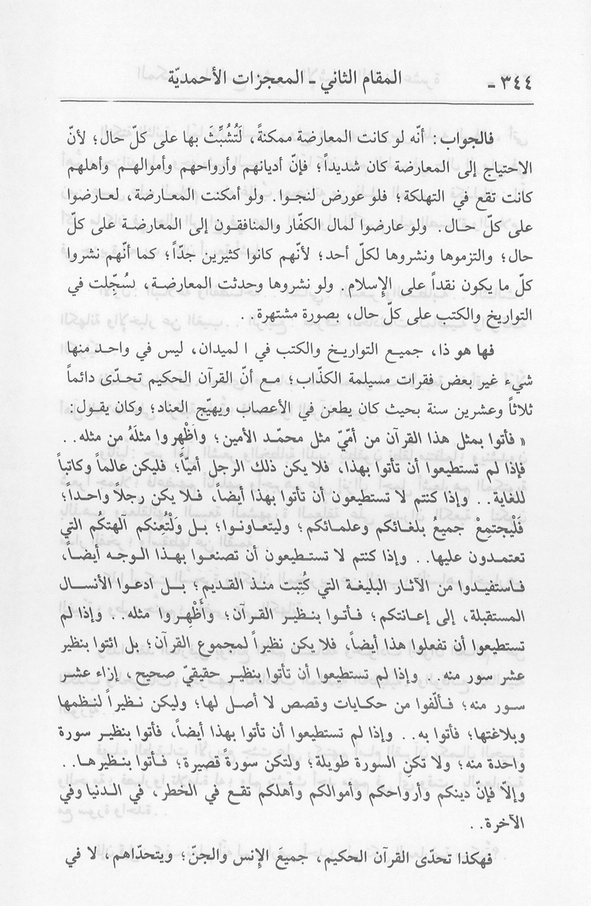 ٣٤٤ - المقام الثاني - المعجزات الأحمديّة
فالجواب: أنّه لو كانت المعارضة ممكنةً، لَتُشُبِّثَ بها على كلّ حال؛ لأنّ
الاحتياج إلى المعارضة كان شديداً؛ فإنّ أديانهم وأرواحهم وأموالهم وأهلهم
كانت تقع في التهلكة؛ فلو عورض لنجوا. ولو أمكنت المعارضة، لعارضوا
على كلّ حال. ولو عارضوا لمال الكفّار والمنافقون إلى المعارضة على كلّ
حال؛ والتزموها ونشروها لكلّ أحد؛ لأنّهم كانوا كثيرين جدّاً؛ كما أنّهم نشروا
كلّ ما يكون نقداً على الإسلام. ولو نشروها وحدثت المعارضة، لسُجِّلت في
التواريخ والكتب على كلّ حال، بصورة مشتهرة. .
فها هو ذا، جميع التواريخ والكتب في ا لميدان، ليس في واحد منها
شيء غير بعض فقرات مسيلمة الكذّاب؛ مع أنّ القرآن الحكيم تحدّى دائماً
ثلاثاً وعشرين سنة بحيث كان يطعن في الأعصاب ويهيّج العناد؛ وكان يقول:
« فأتوا بمثل هذا القرآن من أمّيّ مثل محمّد الأمين؛ واَظْهِروا مثلَهُ من مثله. .
فإذا لم تستطيعوا أن تأتوا بهذا، فلا يكن ذلك الرجل أميّاً؛ فليكن عالماً وكاتباً
للغاية. . وإذا كنتم لا تستطيعون أن تأتوا بهذا أيضاً، فلا يكن رجلاً واحداً؛
فَلْيجتمِعْ جميعُ بلغائكم وعلمائكم؛ وليتعاونوا؛ بل ولْتُعِنكم الهتكُم التي
تعتمدون عليها. . وإذا كنتم لا تستطيعون أن تصنعوا بهذا الوجه أيضاً،
فاستفيدوا من الآثار البليغة التي كُتِبت منذ القديم؛ بل ادعوا الأنسال
المستقبلة، إلى إعانتكم؛ فأتوا بنظير القرآن؛ وأَظْهِروا مثله. . وإذا لم
تستطيعوا أن تفعلوا هذا أيضاً، فلا يكن نظيراً لمجموع القرآن؛ بل ائتوا بنظير
عشر سور منه. . وإذا لم تستطيعوا أن تأتوا بنظير حقيقيّ صحيح، إزاء عشر
سور منه؛ فألّفوا من حكايات وقصص لا أصل لها؛ وليكن نظيراً لنظمها
وبلاغتها؛ فأتوا به. . وإذا لم تستطيعوا أن تأتوا بهذا أيضاً، فأتوا بنظير سورة
واحدة منه؛ ولا تكنِ السورة طويلة؛ ولتكن سورةً قصيرة؛ فأتوا بنظيرها. .
وإلاّ فإنّ دينكم وأرواحكم وأموالكم وأهلكم تقع في الخطر، في الدنيا وفي
الآخرة. .
فهكذا تحدّى القرآن الحكيم، جميعَ الإنس والجنّ؛ ويتحدّاهم، لا في